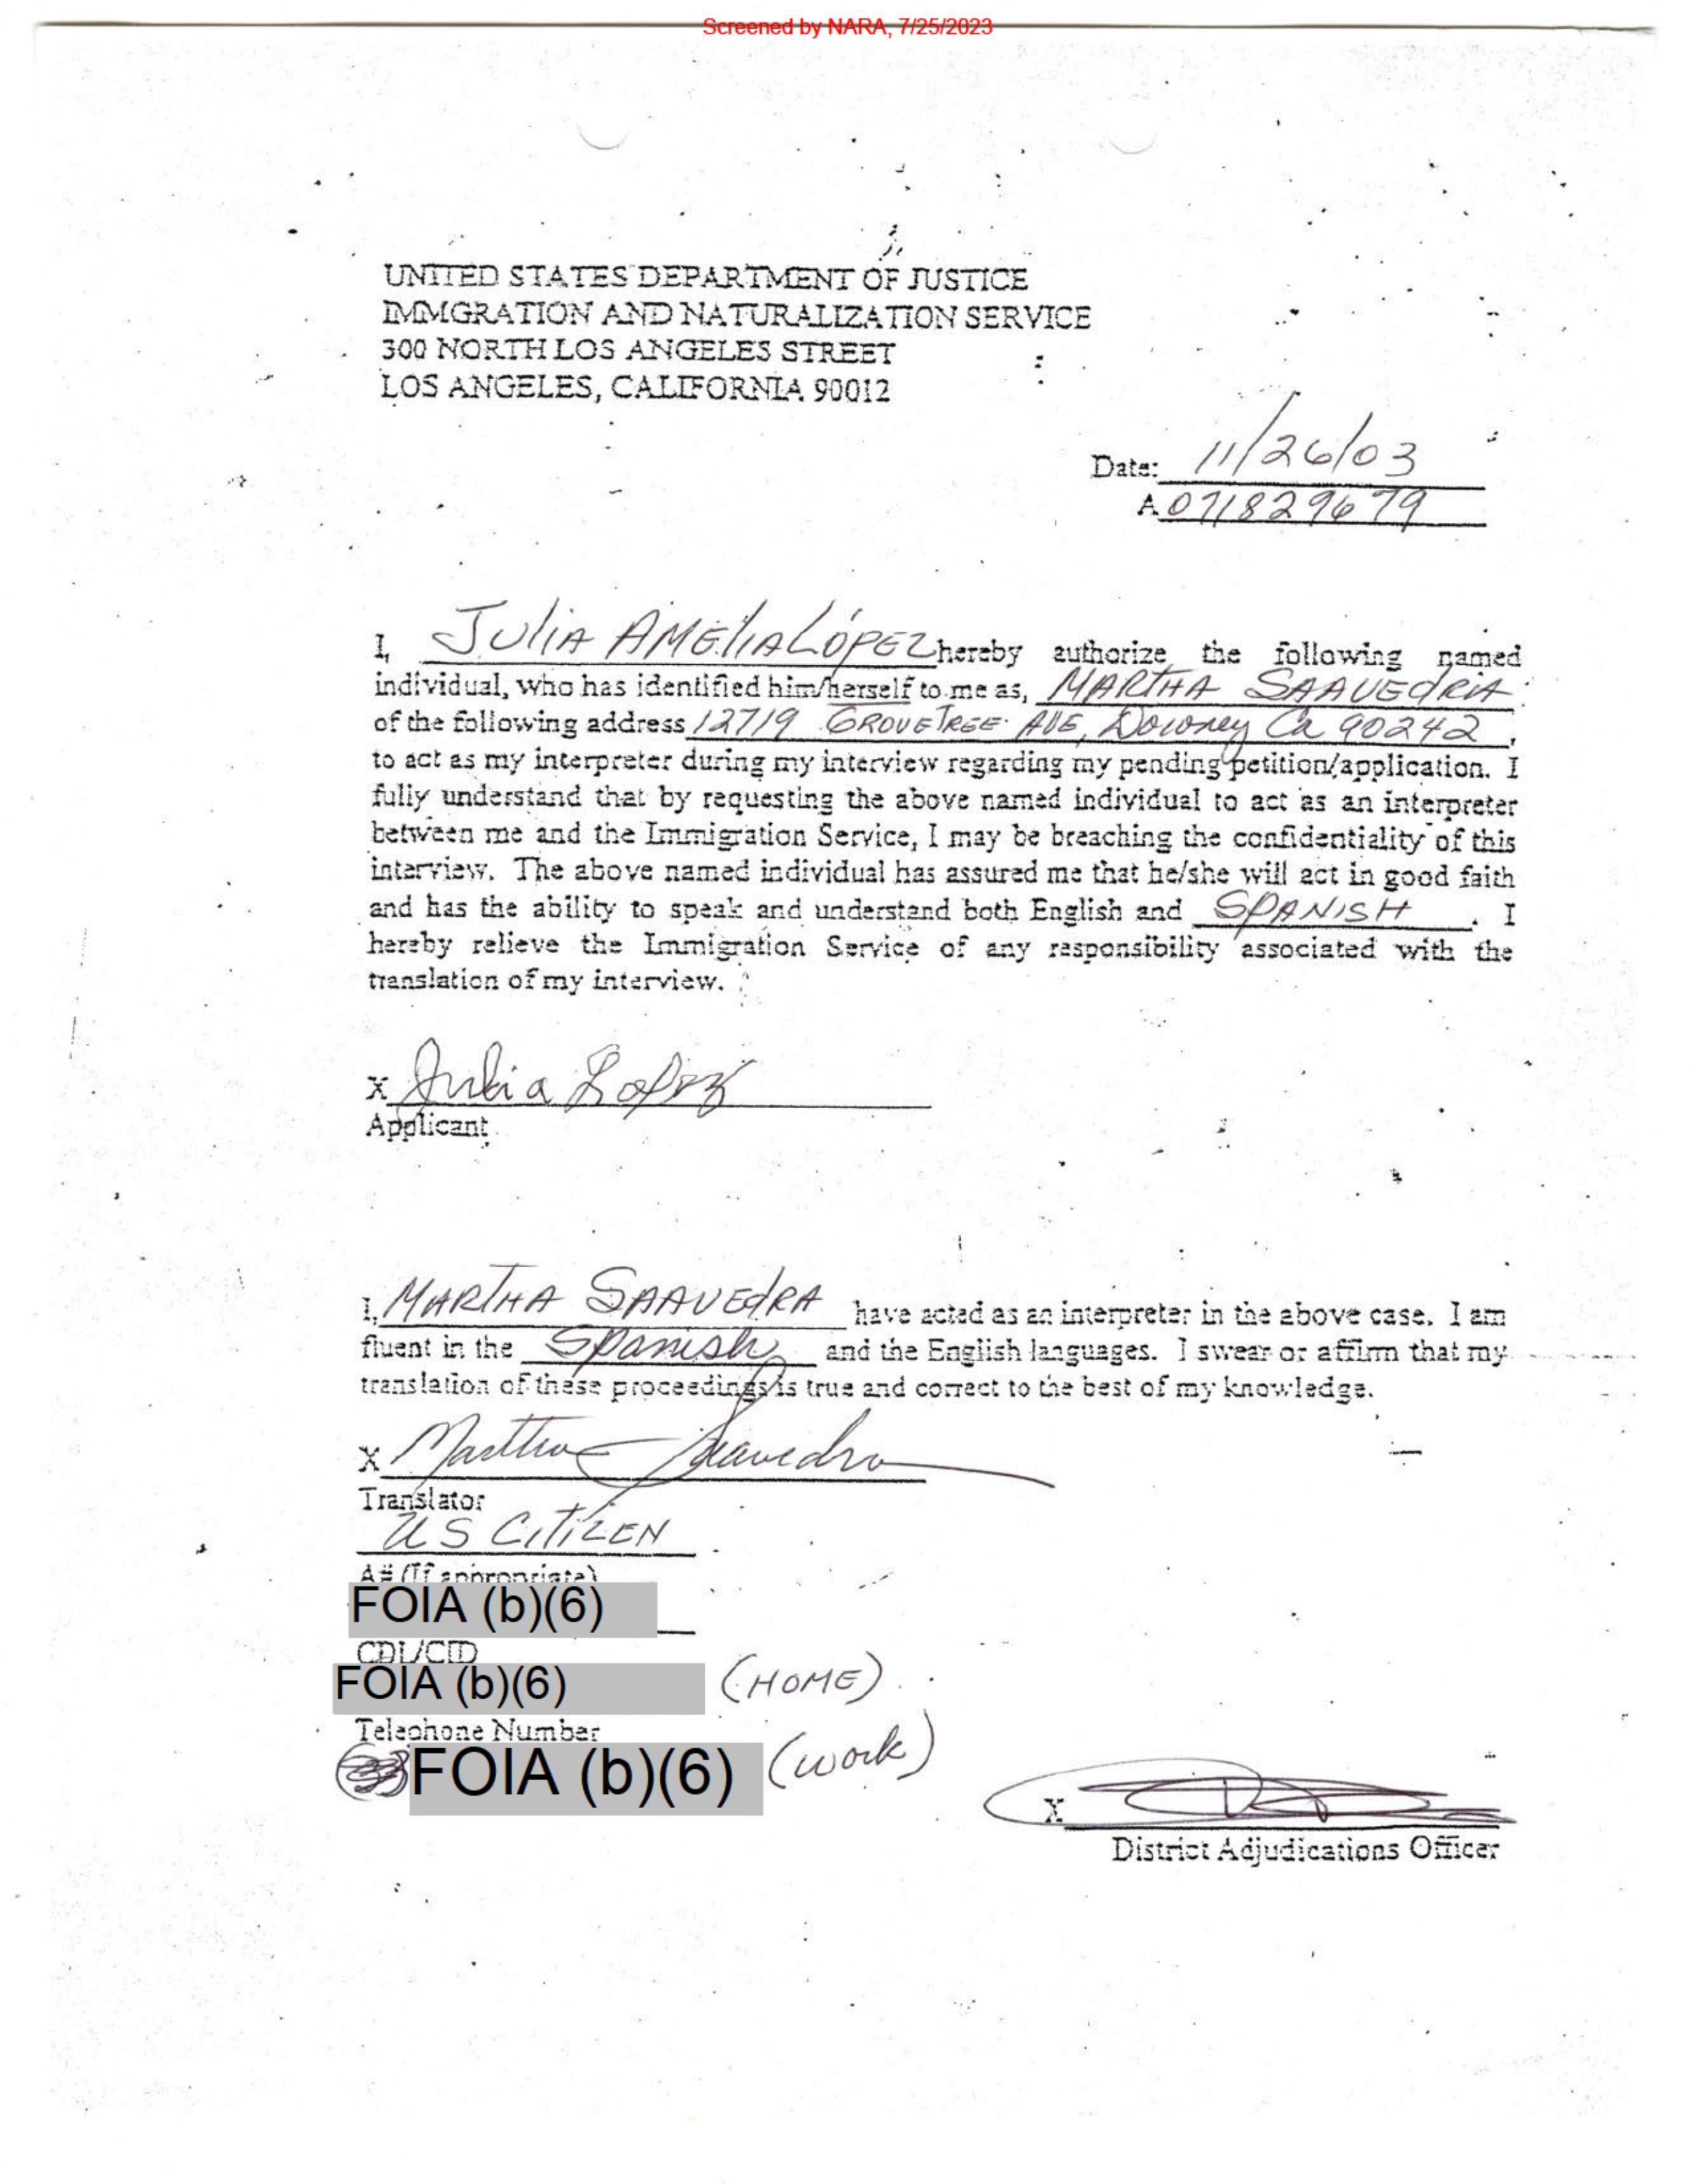 Screened by NARA, 7/25/2023
UNITED STATES DEPARTMENT OF JUSTICE
IMMGRATION AND NATURALIZATION SERVICE
300 NORTH LOS ANGELES STREET
LOS ANGELES, CALIFORNIA 90012
Date: 11/26/03
A 071829679
I, JULIA AMELIA LÓPEZ hereby authorize the following named
individual, who has identified him/herself to me as, MARTHA SAAVEDRA
of the following address 12719 GROVETREE AVE, Downey Ca 90242,
to act as my interpreter during my interview regarding my pending petition/application. I
fully understand that by requesting the above named individual to act as an interpreter
between me and the Immigration Service, I may be breaching the confidentiality of this
interview. The above named individual has assured me that he/she will act in good faith
and has the ability to speak and understand both English and SPANISH. I
hereby relieve the Immigration Service of any responsibility associated with the
translation of my interview.
X Julia Lopez
Applicant
I, MARTHA SAAVEDRA have acted as an interpreter in the above case. I am
fluent in the Spanish and the English languages. I swear or affirm that my
translation of these proceedings is true and correct to the best of my knowledge.
X Martha Saavedra
Translator
US CITIZEN
A# (If appropriate)
FOIA (b)(6)
CDL/CID
FOIA (b)(6) (HOME)
Telephone Number
FOIA (b)(6) (work)
X
District Adjudications Officer